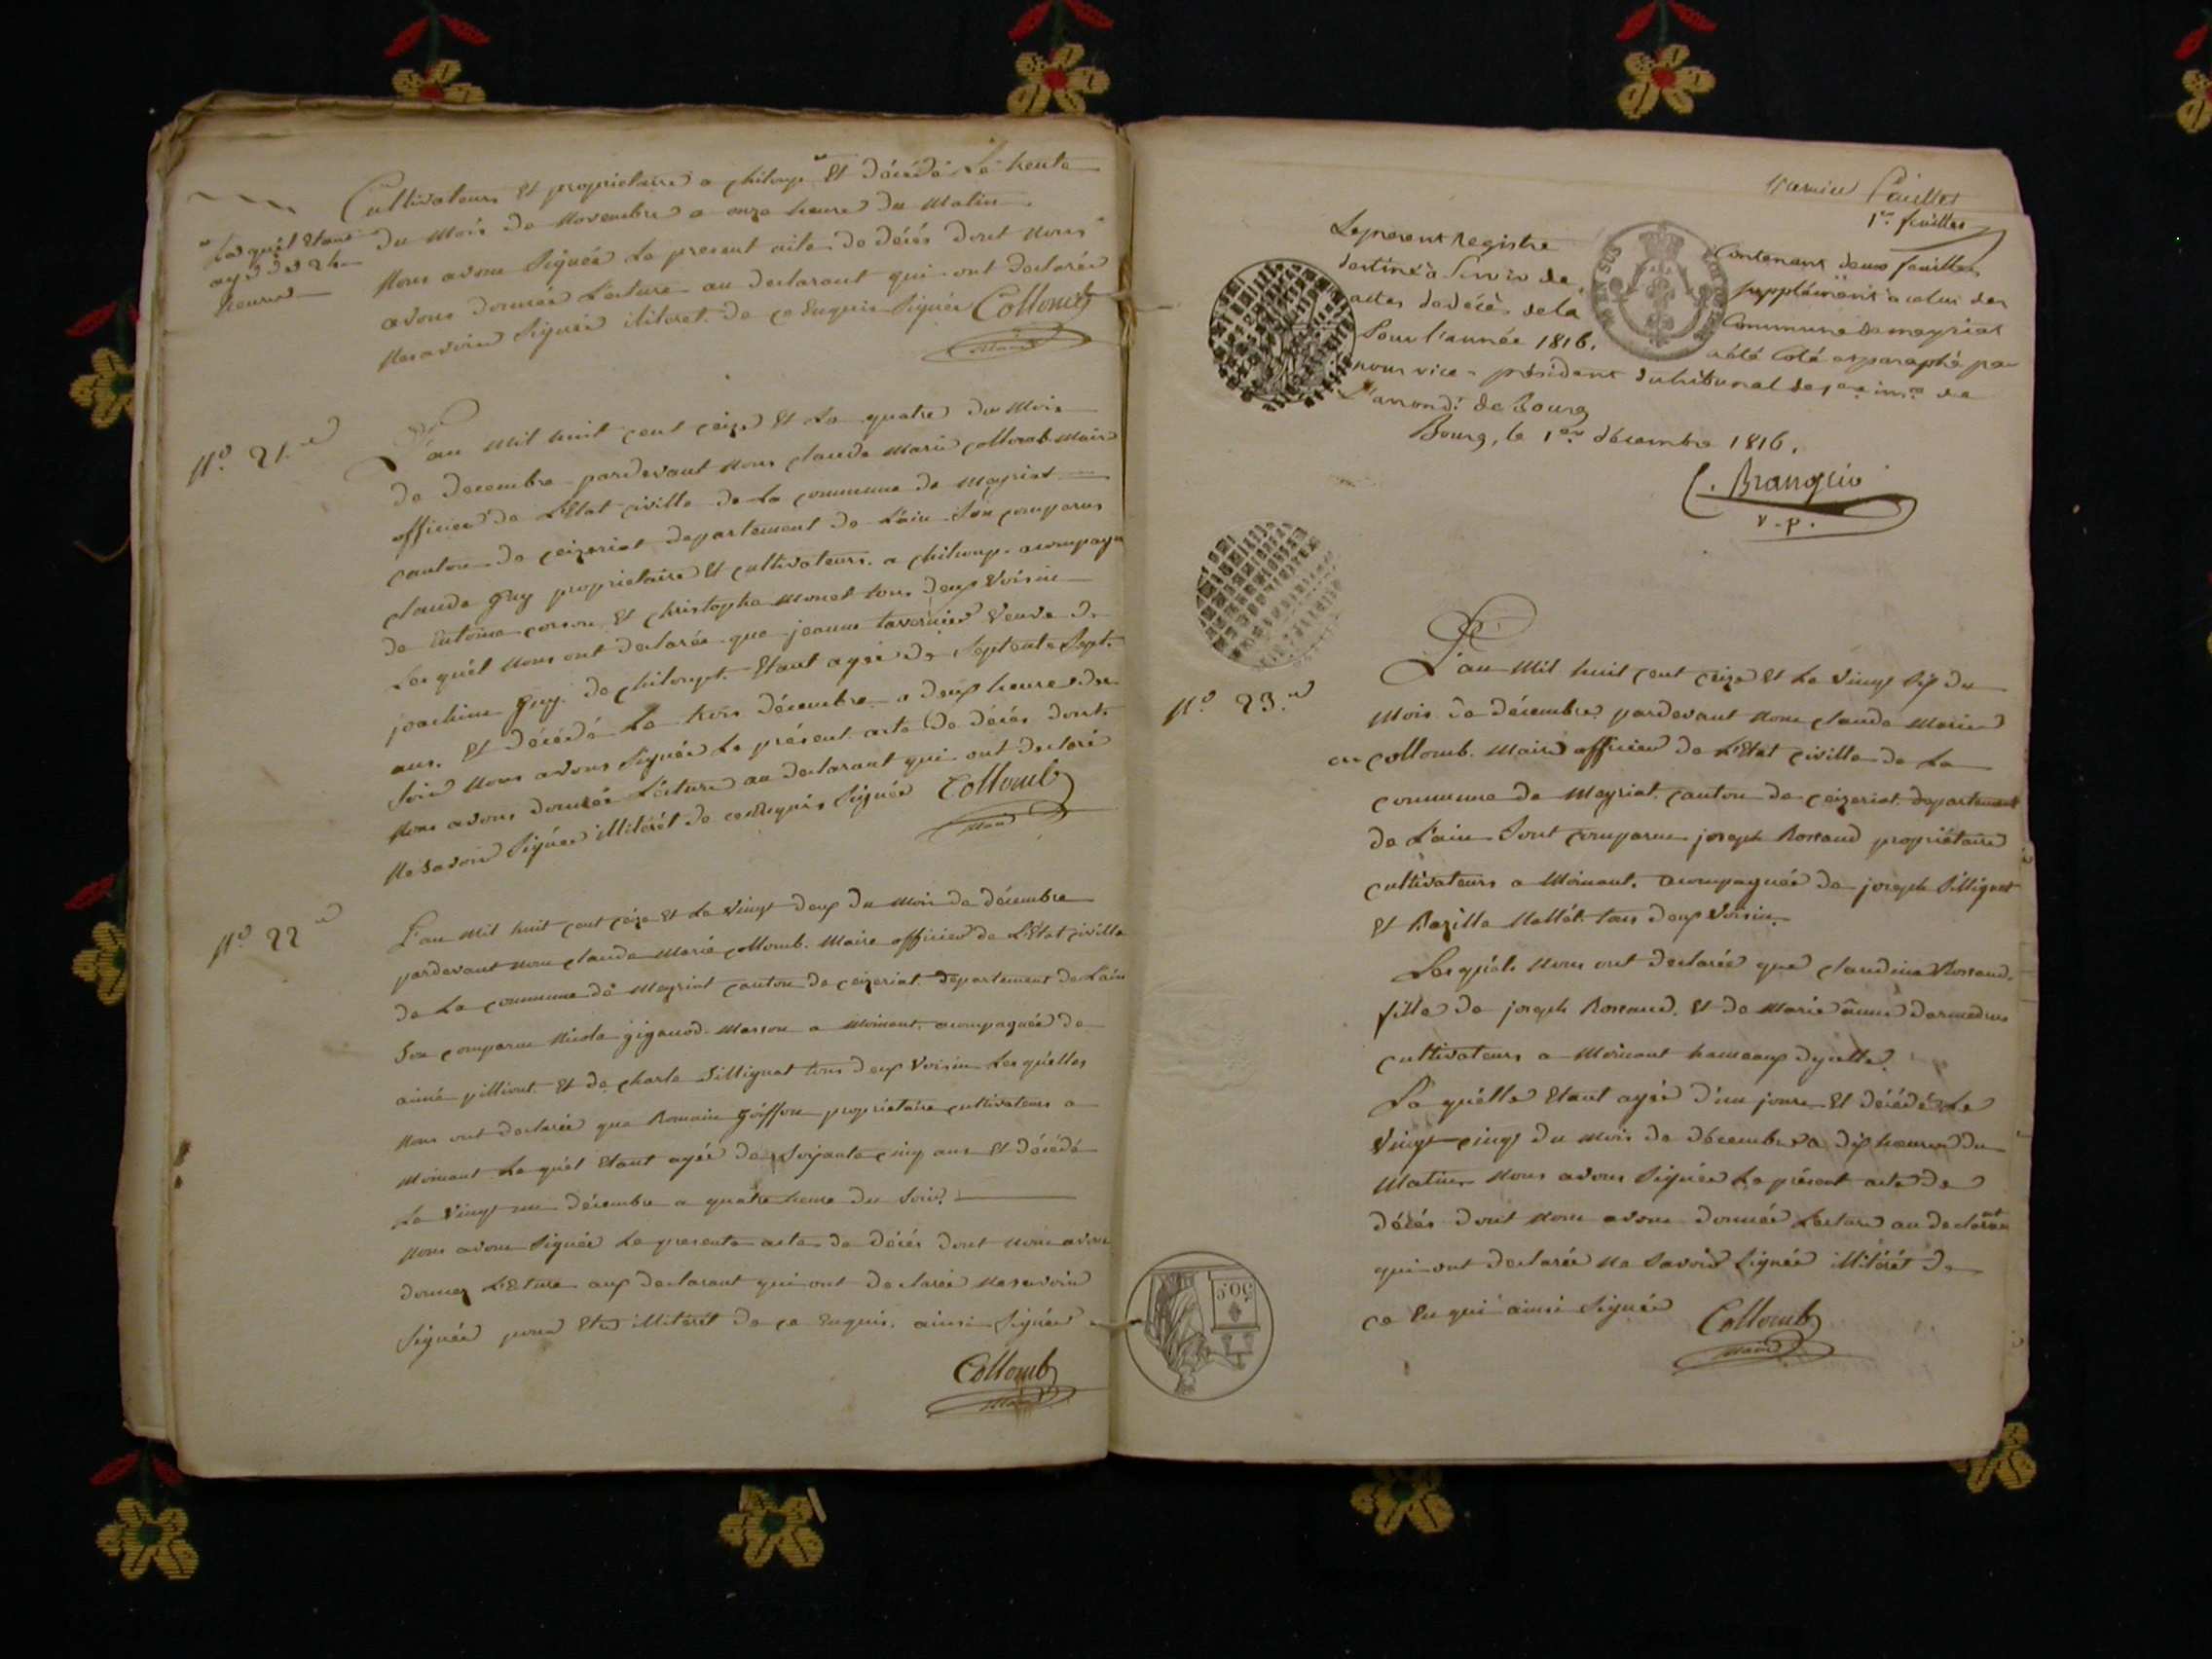 Cultivateurs Et proprietaire a chiloup Et décédé Le trente
du Mois de Novembre a onze heure du Matin
Le quél Etant
agé de 24
heures
Nous avons Signée Le present acte de décés dont Nous
avons donnée Lecture au declarant qui ont declarée
Ne savoir Signée iliteret de ce Enquis Signée Collomb
Maire
N.º 21.e
L'an Mil huit cent ceize Et Le quatre du Mois
de decembre pardevant Nous claude Marie collomb Maire
officier de L'Etat civille de La commune de Meyriat
canton de ceizeriat departement de L'ain Son comparus
claude guy proprietaire Et cultivateurs a chiloup acompagn
de Entoine Et christophe Monet tous deux Voisin
Les quél Nous ont declarée que jeanne tavernier Veuve de
joachim guy de chiloupt Etant agée de Septente Sept
ans Et décédé Le trois décembre a deux heure du
Soir Nous avons Signée Le présent acte de décés dont
Nous avons donnée Lecture au declarant qui ont declaré
Ne Savoir Signée illitérét de ce Enquis Signée Collomb
Maire
N.º 22.e
L'an Mil huit cent ceize Et Le Vingt deux du Mois de décembre
pardevant Nous claude Marie collomb Maire officier de L'Etat civille
de La commune de Meyriat canton de ceizeriat departement de L'ain
Son comparus Nicola gigaud Masson a Moinant acompagnée de
aimé pilliont Et de charle Pillignat tous deux Voisin Les quélles
Nous ont declarée que Romain Goiffon proprietaire cultivateurs a
Moinant Le quél Etant agée de Soixante cinq ans Et décédé
Le Vingt un décembre a quatre heure du Soir
Nous avons Signée Le presente acte de décés dont Nous avons
donner L'Eture aux declarant qui ont declarée Ne savoir
Signée pour Etre illitérét de ce Enquis ainsi Signée
Collomb
Maire
feuillet
1er feuillet
Le present Registre
destiné à Servir de
actes de décès de la
Pour l'année 1816.
Contenant deux feuilles
supplément à celui des
Commune de meyriat
a été coté et paraphé par
nous vice-président du tribunal de 1ère ince de
l'arrondt de Bourg
Bourg, le 1er décembre 1816.
C. Brangier
V.P.
N.º 23.e
L'an Mil huit cent ceize Et Le Vingt Six du
Mois de décembre pardevant Nous claude Marie
collomb Maire officier de L'Etat civille de La
commune de Meyriat canton de ceizeriat departement
de L'ain Sont comparus joseph Rossand propriétaire
cultivateurs a Moinant acompagnée de joseph Pillignat
Et Bazille Mallét tous deux Voisin
Les quéls Nous ont declarée que claudine Rossand
fille de joseph Rossand Et de Marie anne
cultivateurs a Moinant hameaux dycelle
La quélle Etant agée d'un jours Et décédé Le
Vingt cinq du Mois de décembre a dix heures du
Matin Nous avons Signée Le présent acte de
décés dont Nous avons donnée Lecture au declarant
qui ont declarée Ne Savoir Signée illitérét de
ce Enqui ainsi Signée Collomb
Maire
50 C.